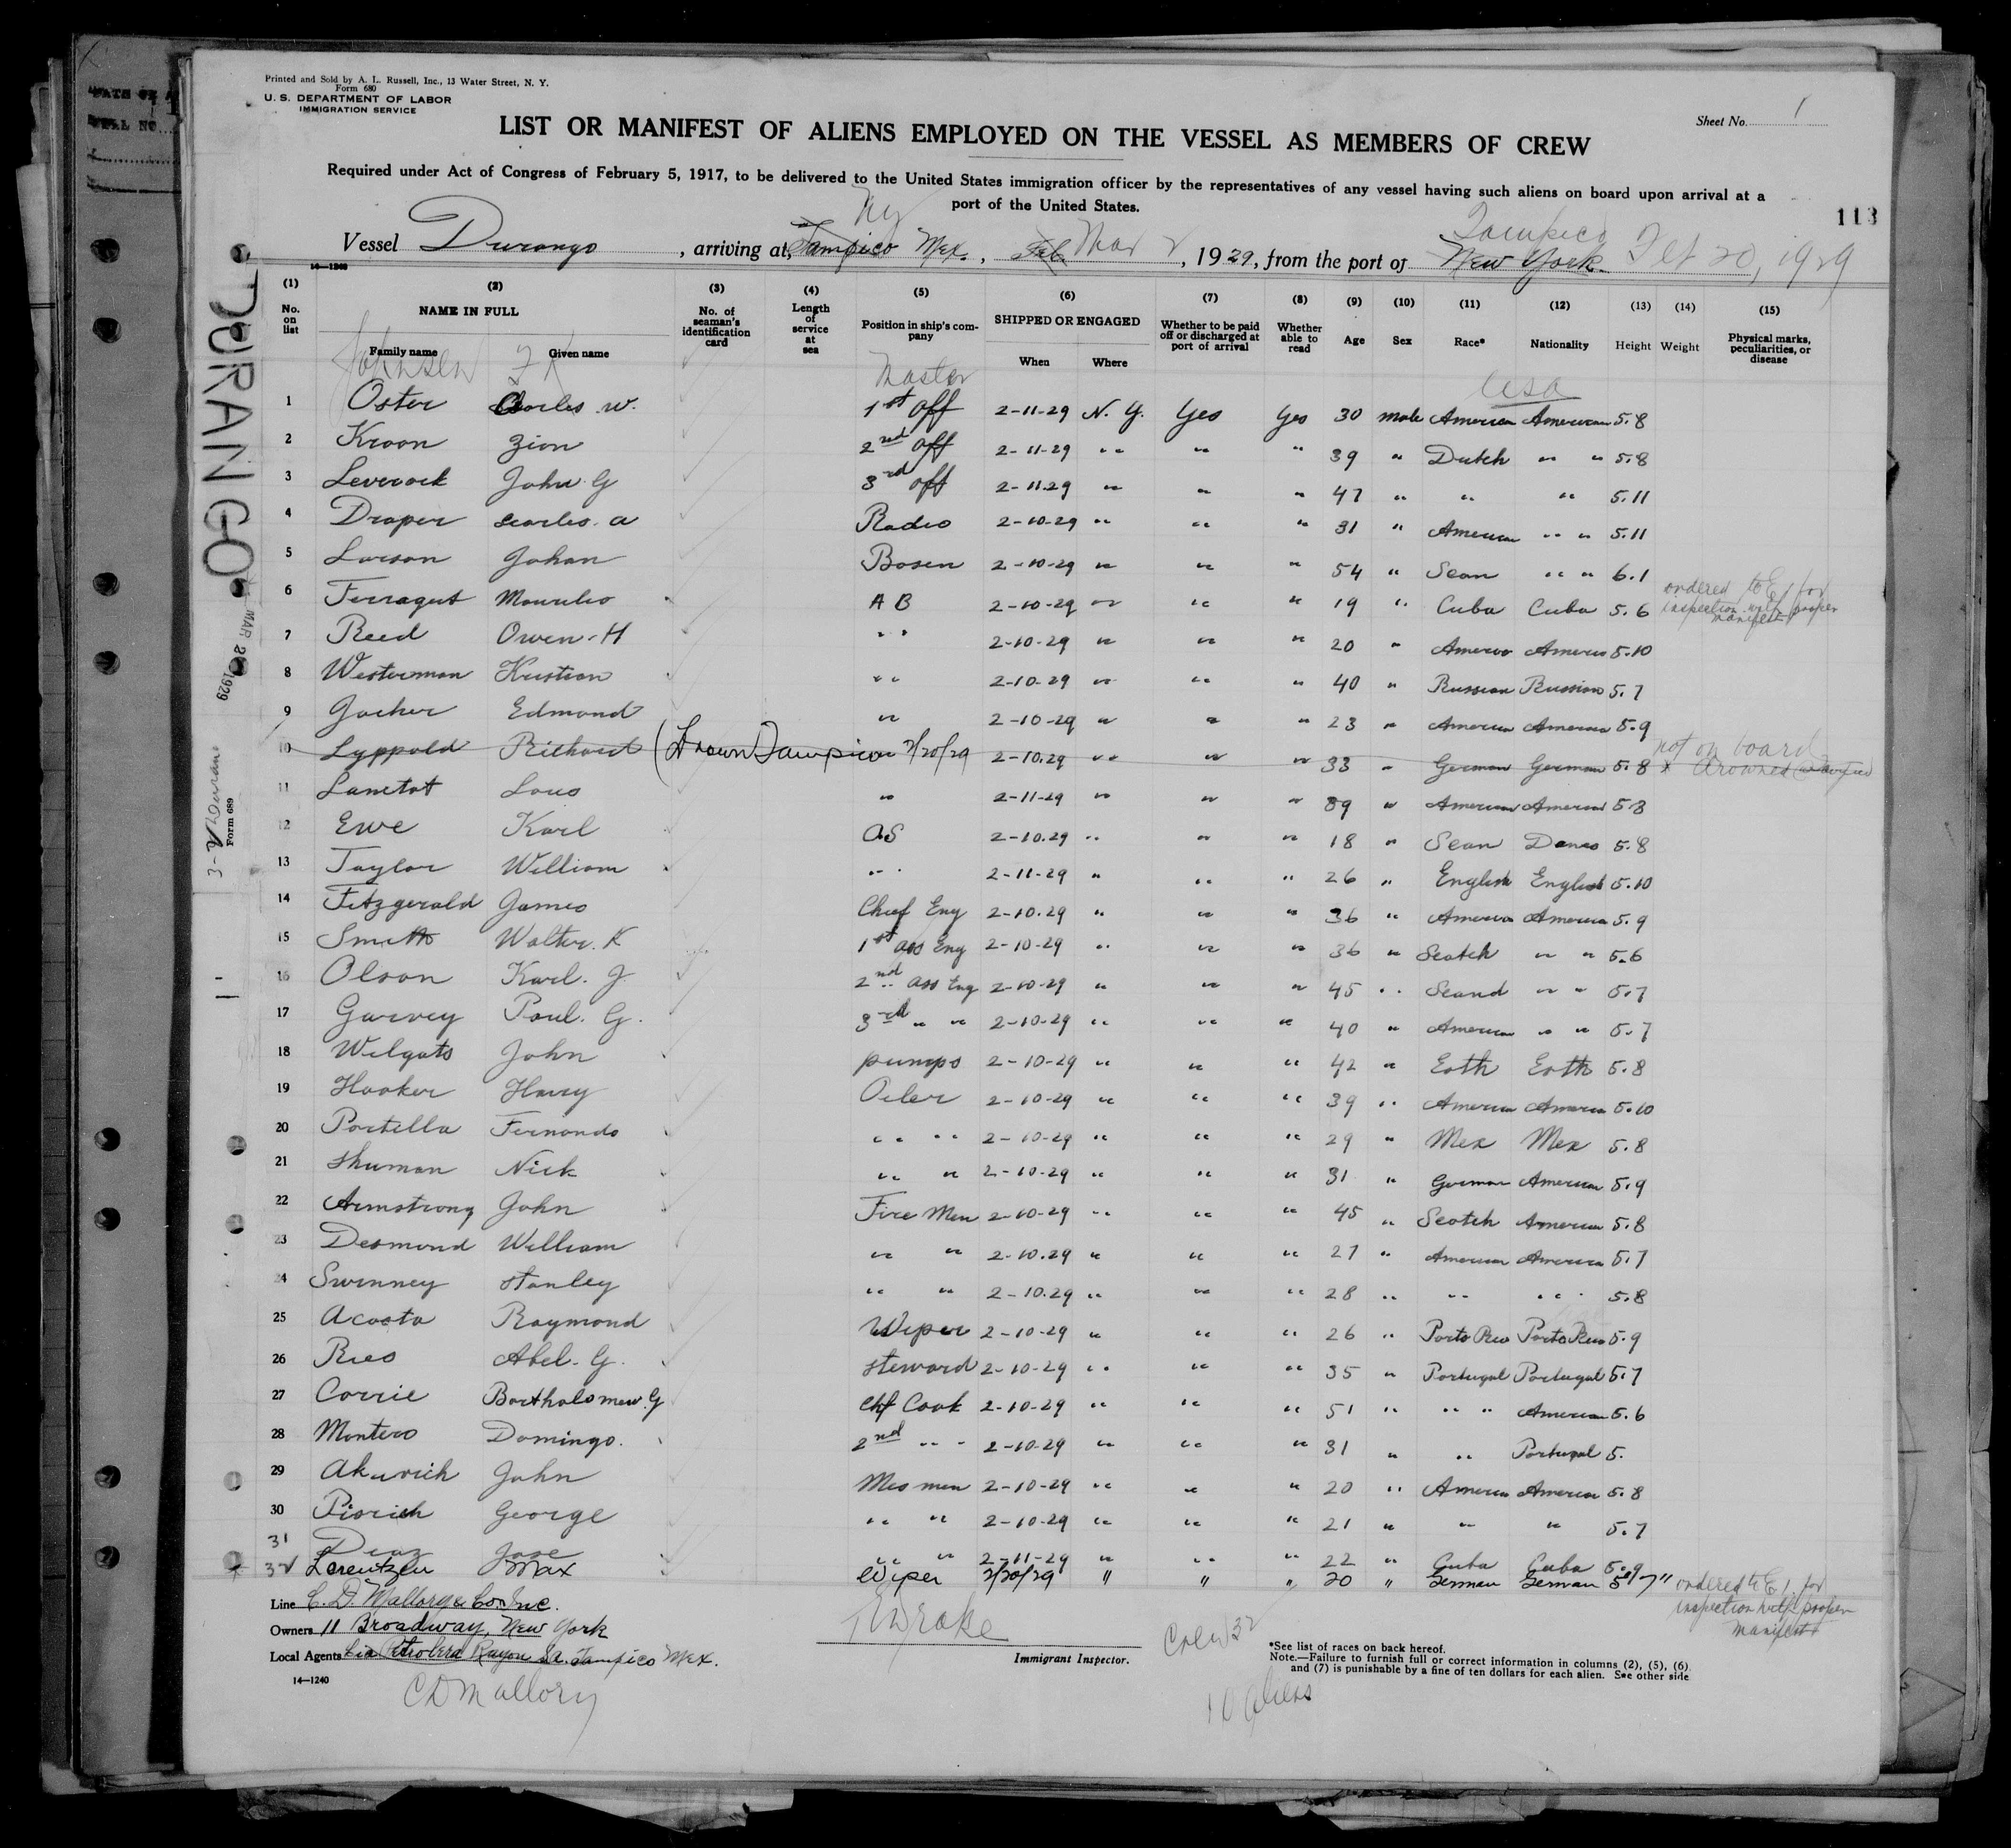 Printed and Sold by A. L. Russell, Inc., 13 Water Street, N. Y.
Form 680
U. S. DEPARTMENT OF LABOR
IMMIGRATION SERVICE
Sheet No. 1
LIST OR MANIFEST OF ALIENS EMPLOYED ON THE VESSEL AS MEMBERS OF CREW
Required under Act of Congress of February 5, 1917, to be delivered to the United States immigration officer by the representatives of any vessel having such aliens on board upon arrival at a
port of the United States.
113
Ny Tampico
Vessel Durango, arriving at Tampico Mex., Feb. Mar 2, 1929, from the port of New York. Feb 20, 1929
14—1240
(1) (2) (3) (4) (5) (6) (7) (8) (9) (10) (11) (12) (13) (14) (15)
No. on list NAME IN FULL Family name Given name No. of seaman's identification card Length of service at sea Position in ship's company SHIPPED OR ENGAGED When Where Whether to be paid off or discharged at port of arrival Whether able to read Age Sex Race* Nationality Height Weight Physical marks, peculiarities, or disease
Johnsen F K Master USA
1 Oster Charles W. 1st off 2-11-29 N. Y. Yes Yes 30 male American American 5.8
2 Kroon Zion 2nd off 2-11-29 " " " 39 " Dutch " " 5.8
3 Leverock John G 3rd off 2-11-29 " " " 47 " " " 5.11
4 Draper Searles. A Radio 2-10-29 " " " 31 " American " " 5.11
5 Larson Johan Bosen 2-10-29 " " " 54 " Scan " " 6.1
6 Ferragut Mourelio A B 2-10-29 " " " 19 " Cuba Cuba 5.6 ordered to E I for inspection with proper manifest
7 Reed Owen-H " " 2-10-29 " " " 20 " America America 5.10
8 Westerman Kristian " " 2-10-29 " " " 40 " Russian Russian 5.7
9 Gacher Edmond " 2-10-29 " " " 23 " American American 5.9
10 Lyppold Richard (Drown Tampico 2/20/29 2-10.29 " " " 33 " German German 5.8 not on board * drowned
11 Lanctot Lous " 2-11-29 " " " 39 " American American 5.8
12 Ewe Karl O.S 2-10.29 " " " 18 " Scan Danes 5.8
13 Taylor William " 2-11-29 " " " 26 " English English 5.10
14 Fitzgerald James Chief Eng 2-10.29 " " " 36 " America America 5.9
15 Smith Walter. K 1st ass Eng 2-10-29 " " " 36 " Scotch " " 5.6
16 Olson Karl. J 2nd ass Eng 2-10-29 " " " 45 " Scand " " 5.7
17 Garvey Paul. G. 3rd " " 2-10-29 " " " 40 " American " " 5.7
18 Wilgats John pumps 2-10-29 " " " 42 " Esth Esth 5.8
19 Hooker Harry Oiler 2-10-29 " " " 39 " America America 5.10
20 Portilla Fernando " " 2-10-29 " " " 29 " Mex Mex 5.8
21 Shuman Nick " " 2-10-29 " " " 31 " German American 5.9
22 Armstrong John Fire Men 2-10-29 " " " 45 " Scotch American 5.8
23 Desmond William " " 2-10.29 " " " 27 " American America 5.7
24 Swinney Stanley " " 2-10.29 " " " 28 " " " 5.8
25 Acosta Raymond Wiper 2-10-29 " " " 26 " Porto Rico Porto Rico 5.9
26 Rios Abel. G. Steward 2-10-29 " " " 35 " Portugal Portugal 5.7
27 Corrie Bartholomew G Chf Cook 2-10-29 " " " 51 " " " American 5.6
28 Montero Domingo. 2nd " " 2-10-29 " " " 31 " " Portugal 5.
29 Akurich John Mes men 2-10-29 " " " 20 " America America 5.8
30 Pivrich George " " 2-10-29 " " " 21 " " " 5.7
31 Diaz Jose " " 2-11-29 " " " 22 " Cuba Cuba 5.9
* 32 Lorentzen Max Wiper 2/20/29 " " " 20 " German German 5' 7" ordered to E I. for inspection with proper manifest
Line C. D. Mallory & Co. Inc.
Owners 11 Broadway, New York
Local Agents Cia Petrolera Rayon Sa. Tampico Mex.
Immigrant Inspector.
Crew 32
*See list of races on back hereof.
Note.—Failure to furnish full or correct information in columns (2), (5), (6)
and (7) is punishable by a fine of ten dollars for each alien. See other side
14—1240
C D Mallory
10 Aliens
DURANGO
MAR 2 1929
Form 689